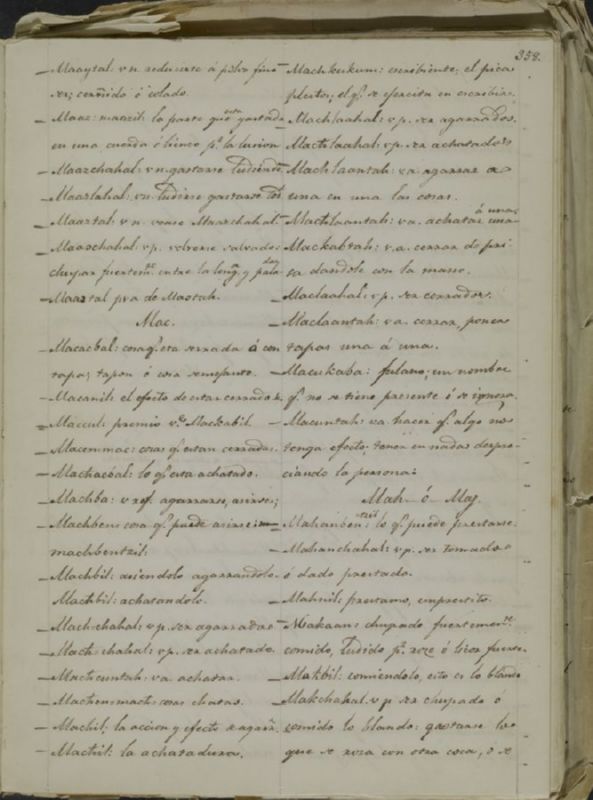 358.
– Maaytal: v n. reducirse á polvo fino
ser; cernido ó colado.
– Maaz: maazil: la parte que esta gastada
en una cuerda ó lienzo pr. la lusion
– Maazchahal: v n. gastarse ludiendose
– Maazlahal: vn. ludirse gastarse
– Maaztal: v n. vease Maazchahal.
– Maaschahal vp. volverse salvado:
chupar fuertemte. entre la lenga. y pala
dar
– Maaztal pva de Maostah.
Mac.
– Macacbal: cosa q. esta cerrada ó con
tapa; tapon ó cosa semejante.
– Macanil: el efecto de estar cerrado
– Maccul: premio ve. Mackabil.
– Macenmac: cosas q. estan cerradas.
– Machacbal: lo q. esta achatado.
– Machba: v ref. agarrarse, asirse;
– Machben: cosa q. puede asirse:
machbentzil:
– Machbil: asiendolo agarrandole.
Machbil: achatandolo.
– Mach-chahal: v p. ser agarrado
– Mach-chahal: v p. ser achatado.
– Machcuntah: va. achatar.
– Machenmach: cosas chatas.
– Machil, la accion y efecto
– Machil: la achatadura.
– Machkukum: escribiente; el pica
pleitos; el q. se ejercita en escribir.
– Machlaahal: vp. ser agarrados.
– Machlaahal: vp. ser achatados
– Machlaantah: va agarrar a
una en una las cosas.
– Machlaantah: va. achatar á una
una
– Mackabtah: v.a. cerrar de pri
sa dandole con la mano.
– Maclaahal: v p. ser cerrados.
– Maclaantah: va. cerrar, poner
tapas una á una.
– Macukaba: fulano; un nombre
q. no se tiene presente ó se ignora.
– Macuntah: va. hacer q. algo no
tenga efecto: tener en nada: despre
ciando la persona:
Mah – ó – Maj.
– Mahanben-tzil: lo q. puede prestarse.
– Mahanchahal: v p. ser tomado
ó dado prestado.
– Mahnil: prestamo, emprestito.
– Makaan: chupado fuertemente.
comido, ludido pr. roze ó
– Makbil: comiendolo, esto es lo blando
– Makchahal. v p ser chupado ó
comido lo blando: gastarse lo
que se roza con otra cosa, ó se